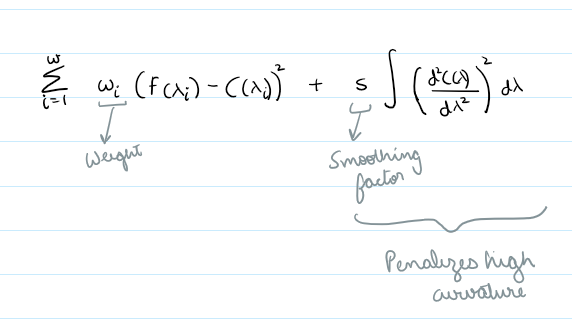 w
∑ ωᵢ (F(λᵢ) - C(λᵢ))² + s ∫ (d²C(λ)/dλ²)² dλ
i=1
Weight
Smoothing
factor
Penalizes high
curvature